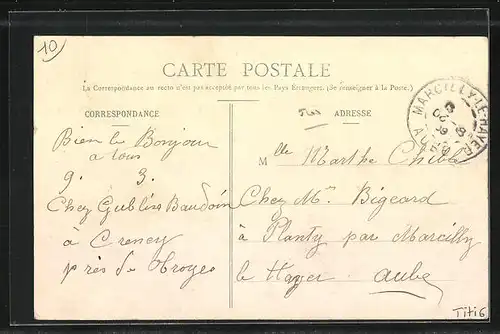 10
CARTE POSTALE
La Correspondance au recto n'est pas acceptée par tous les Pays Étrangers. (Se renseigner à la Poste.)
CORRESPONDANCE
ADRESSE
MARCILLY-LE-HAYER
AUBE
Bien le Bonjour
a tous
9. 3.
Chez Baudoin
à Creney
près de Troyes
Mlle Marthe
Chez Mr Bigeard
à Planty par Marcilly
le Hayer. Aube
Titi6